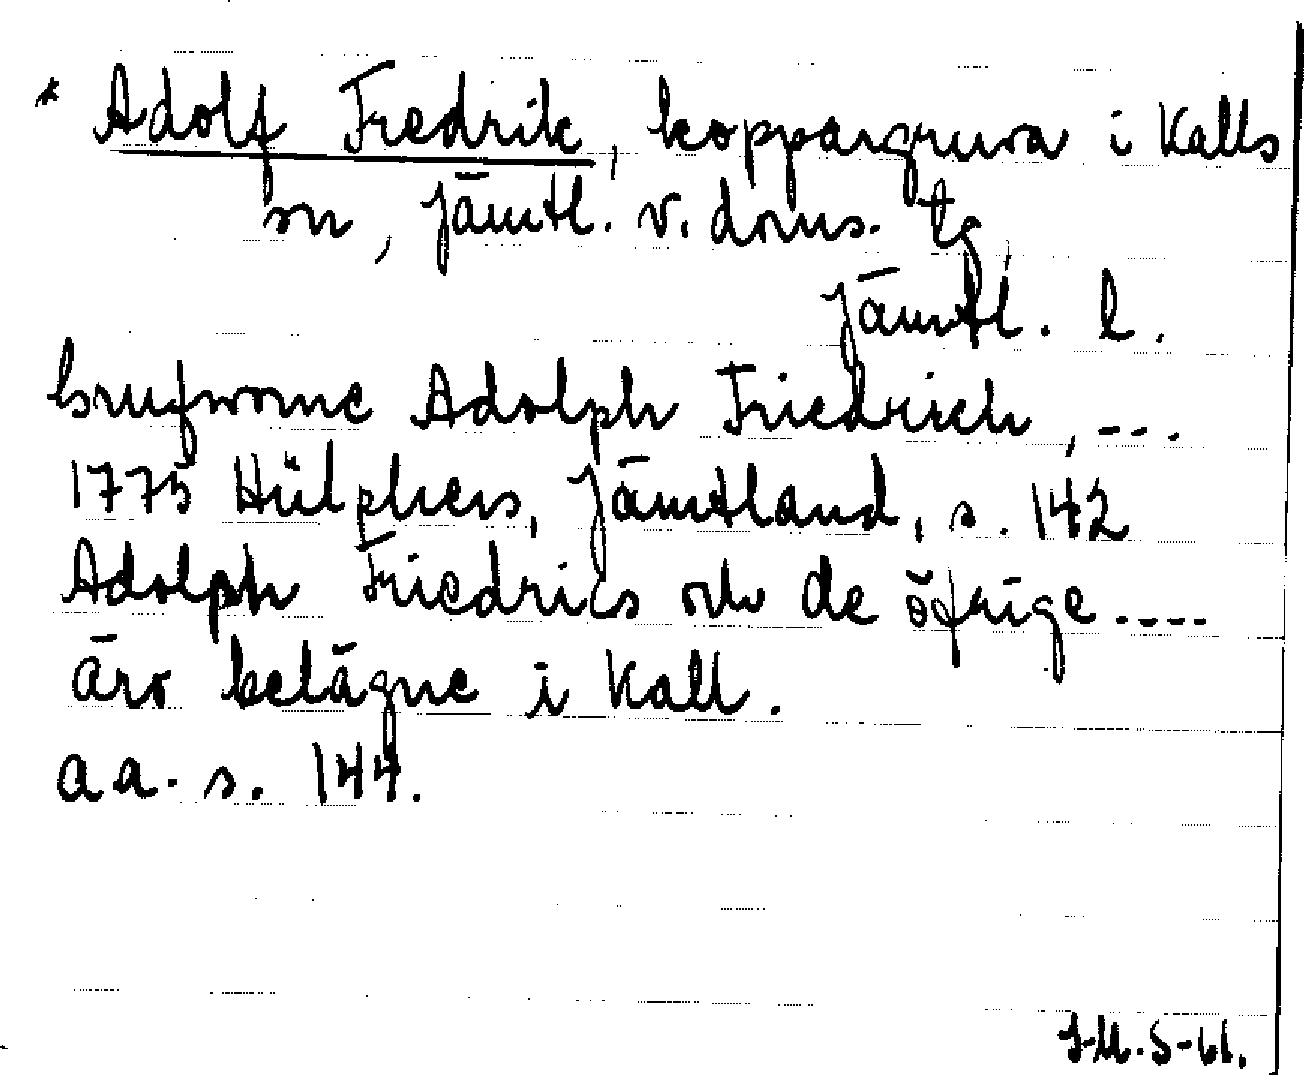 * Adolf Fredrik, koppargruva i Kalls
sn, Jämtl. v. doms. tg,
Jämtl. l.
brufworne Adolph Friedrich, ---.
1775 Hülphers, Jämtland, s. 142
Adolph Friedrics och de öfrige ....
äro belägne i Kall.
a a. s. 144.